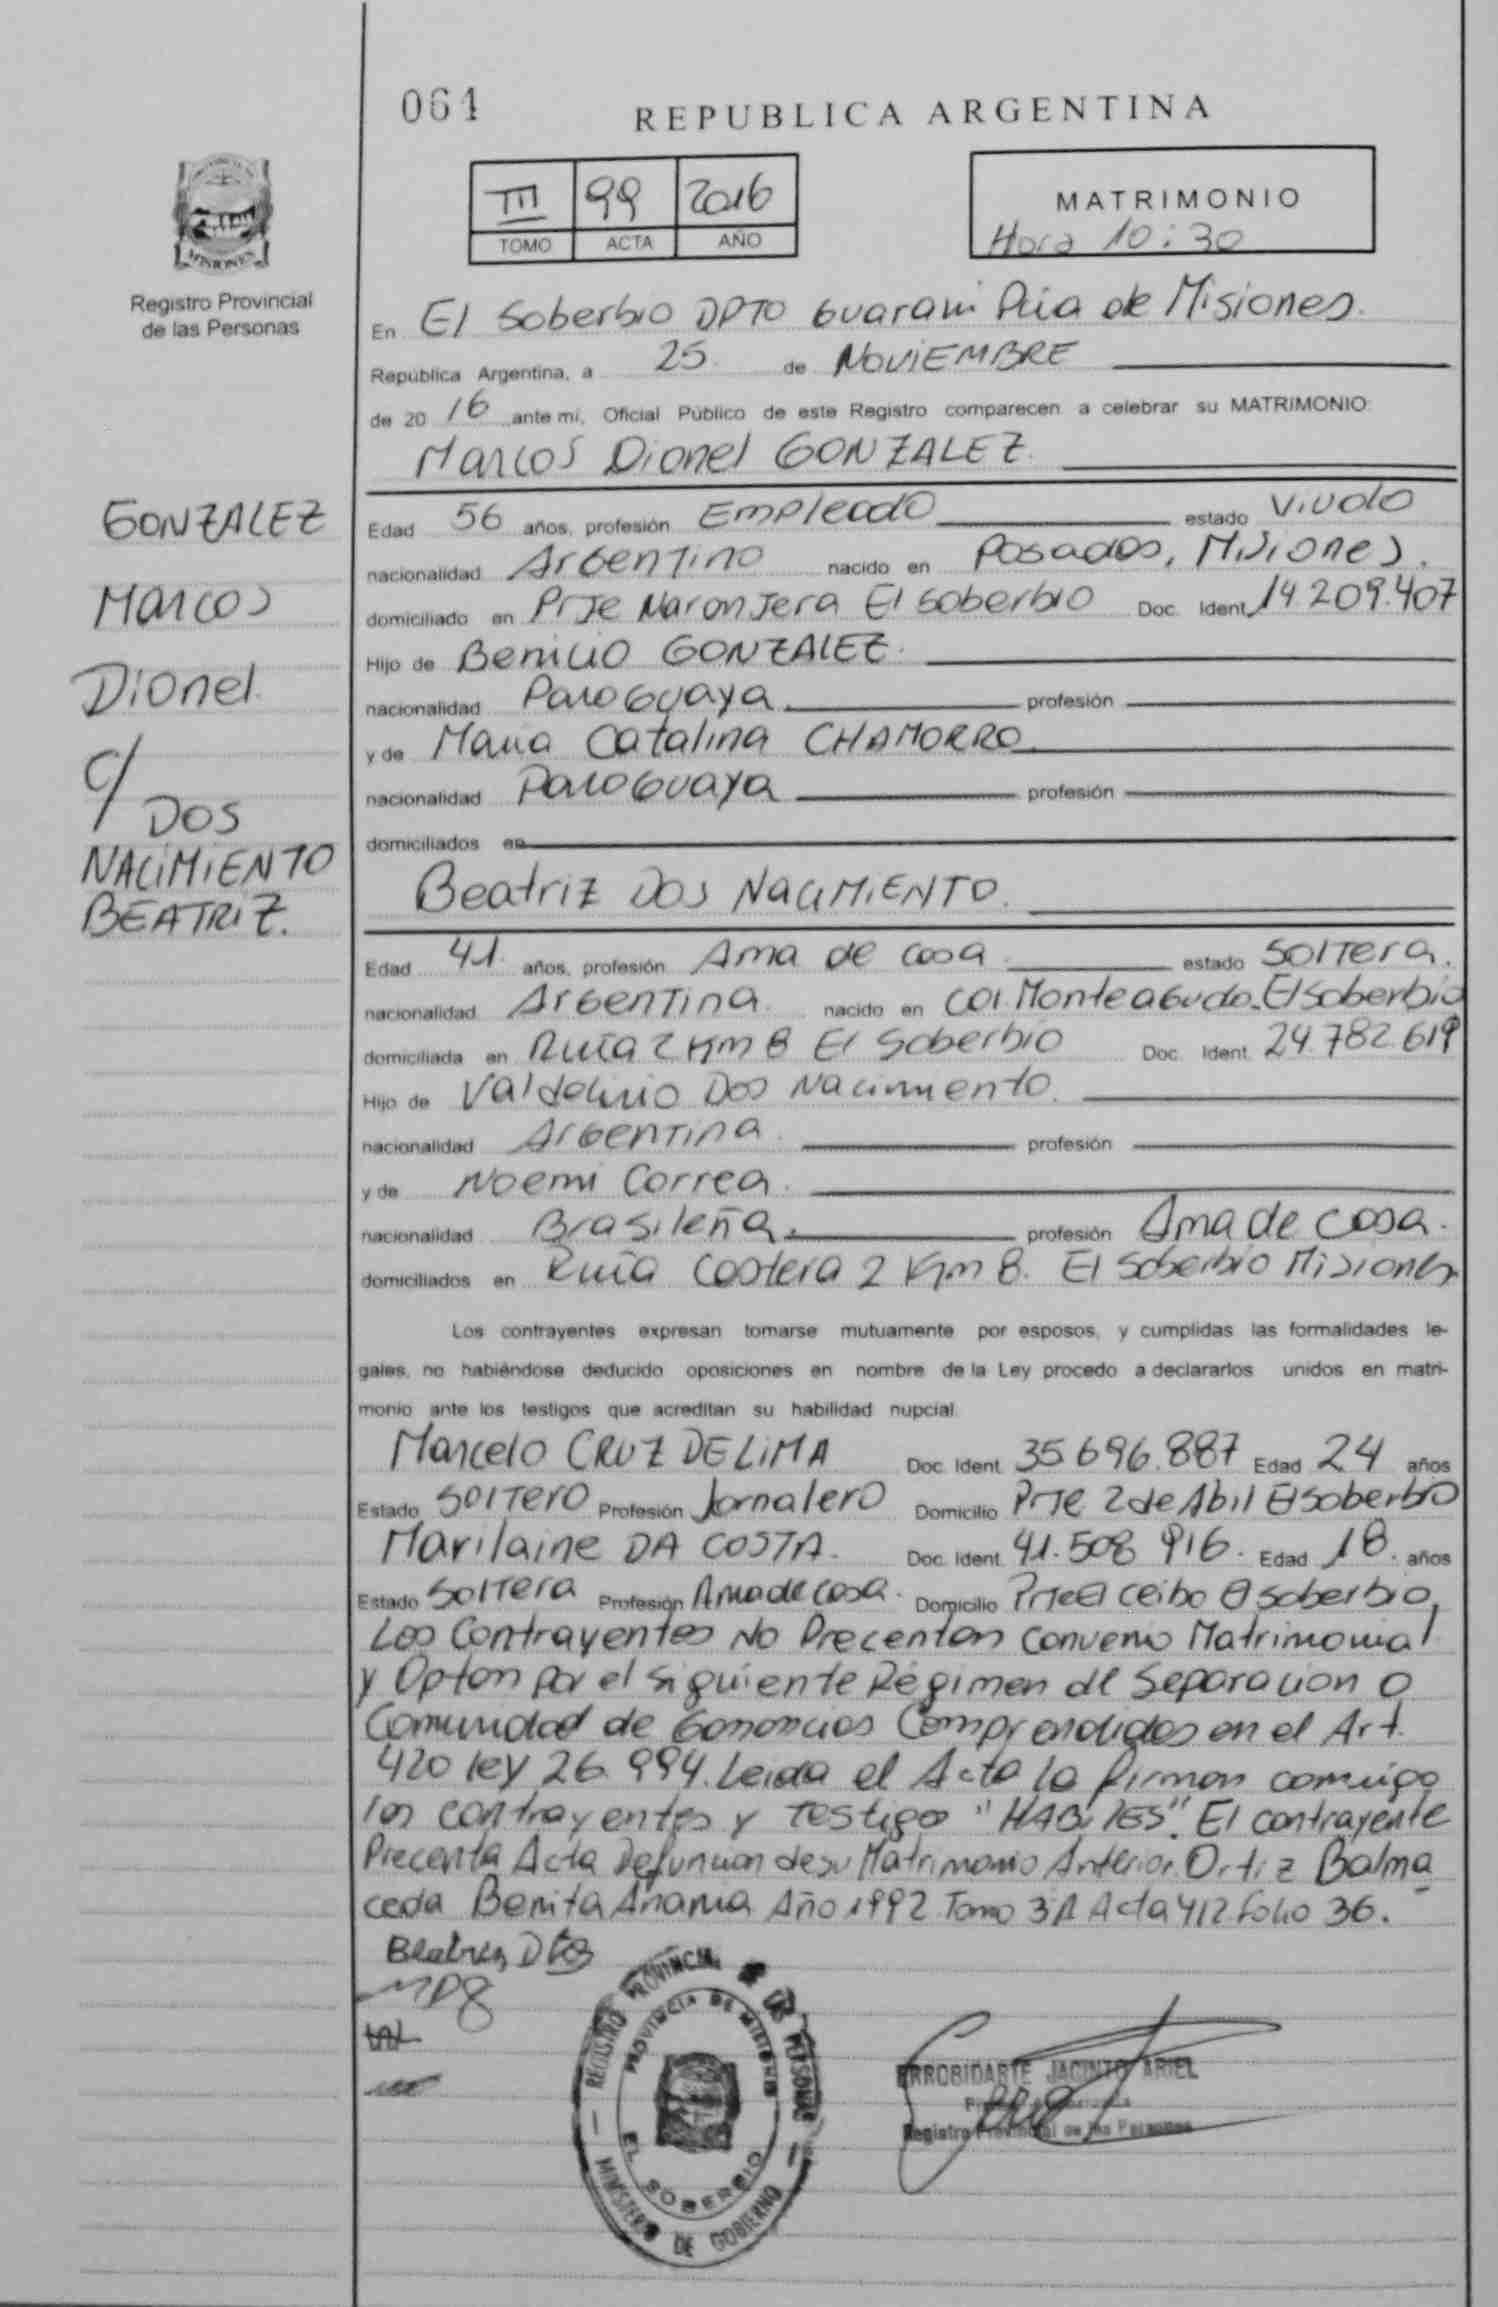 061
REPUBLICA ARGENTINA
III 99 2016
TOMO ACTA AÑO
MATRIMONIO
Hora 10:30
MISIONES
Registro Provincial
de las Personas
En El Soberbio DPTO Guarani Pcia de Misiones.
República Argentina, a 25 de NOVIEMBRE
de 20 16 ante mí, Oficial Público de este Registro comparecen a celebrar su MATRIMONIO:
Marcos Dionel GONZALEZ.
GONZALEZ
Marcos
Dionel
C/
DOS
NACIMIENTO
BEATRIZ.
Edad 56 años, profesión Empleado estado Viudo
nacionalidad Argentino nacido en Posadas, Misiones.
domiciliado en Prje Naranjera El Soberbio Doc. Ident. 14 209.407
Hijo de Benicio GONZALEZ.
nacionalidad Paraguaya profesión
y de Maria Catalina CHAMORRO
nacionalidad Paraguaya profesión
domiciliados en
Beatriz DOS NACIMIENTO.
Edad 41 años, profesión Ama de casa estado Soltera.
nacionalidad Argentina nacido en Col. Monteagudo. El Soberbio
domiciliada en Ruta 2 Km 8 El Soberbio Doc. Ident. 24.782.619
Hijo de Dos Nacimiento.
nacionalidad Argentina profesión
y de Noemi Correa.
nacionalidad Brasileña. profesión Ama de casa.
domiciliados en Ruta Costera 2 Km 8. El Soberbio Misiones
Los contrayentes expresan tomarse mutuamente por esposos, y cumplidas las formalidades le-
gales, no habiéndose deducido oposiciones en nombre de la Ley procedo a declararlos unidos en matri-
monio ante los testigos que acreditan su habilidad nupcial.
Marcelo CRUZ DE LIMA Doc. Ident. 35.696.887 Edad 24 años
Estado Soltero Profesión Jornalero Domicilio Prje 2 de Abil El Soberbio
Marilaine DA COSTA. Doc. Ident. 41.508 916. Edad 18. años
Estado Soltera Profesión Ama de casa. Domicilio Prje El ceibo El Soberbio.
Los Contrayentes No Precentan Convenio Matrimonial
y Optan por el siguiente Régimen de Separacion o
Comunidad de Ganancias Comprendidos en el Art.
420 ley 26.994. Leida el Acta la firman conmigo
los contrayentes y testigo "HABILES". El contrayente
Precenta Acta Defuncion de su Matrimonio Anterior. Ortiz Balma
ceda Benita Año 1992 Tomo 3A Acta 412 folio 36.
Beatriz
MDG
REGISTRO PROVINCIAL DE LAS PERSONAS
PROVINCIA DE MISIONES
EL SOBERBIO
MINISTERIO DE GOBIERNO
ERROBIDARTE JACINTO ARIEL
Registro Provincial de las Personas